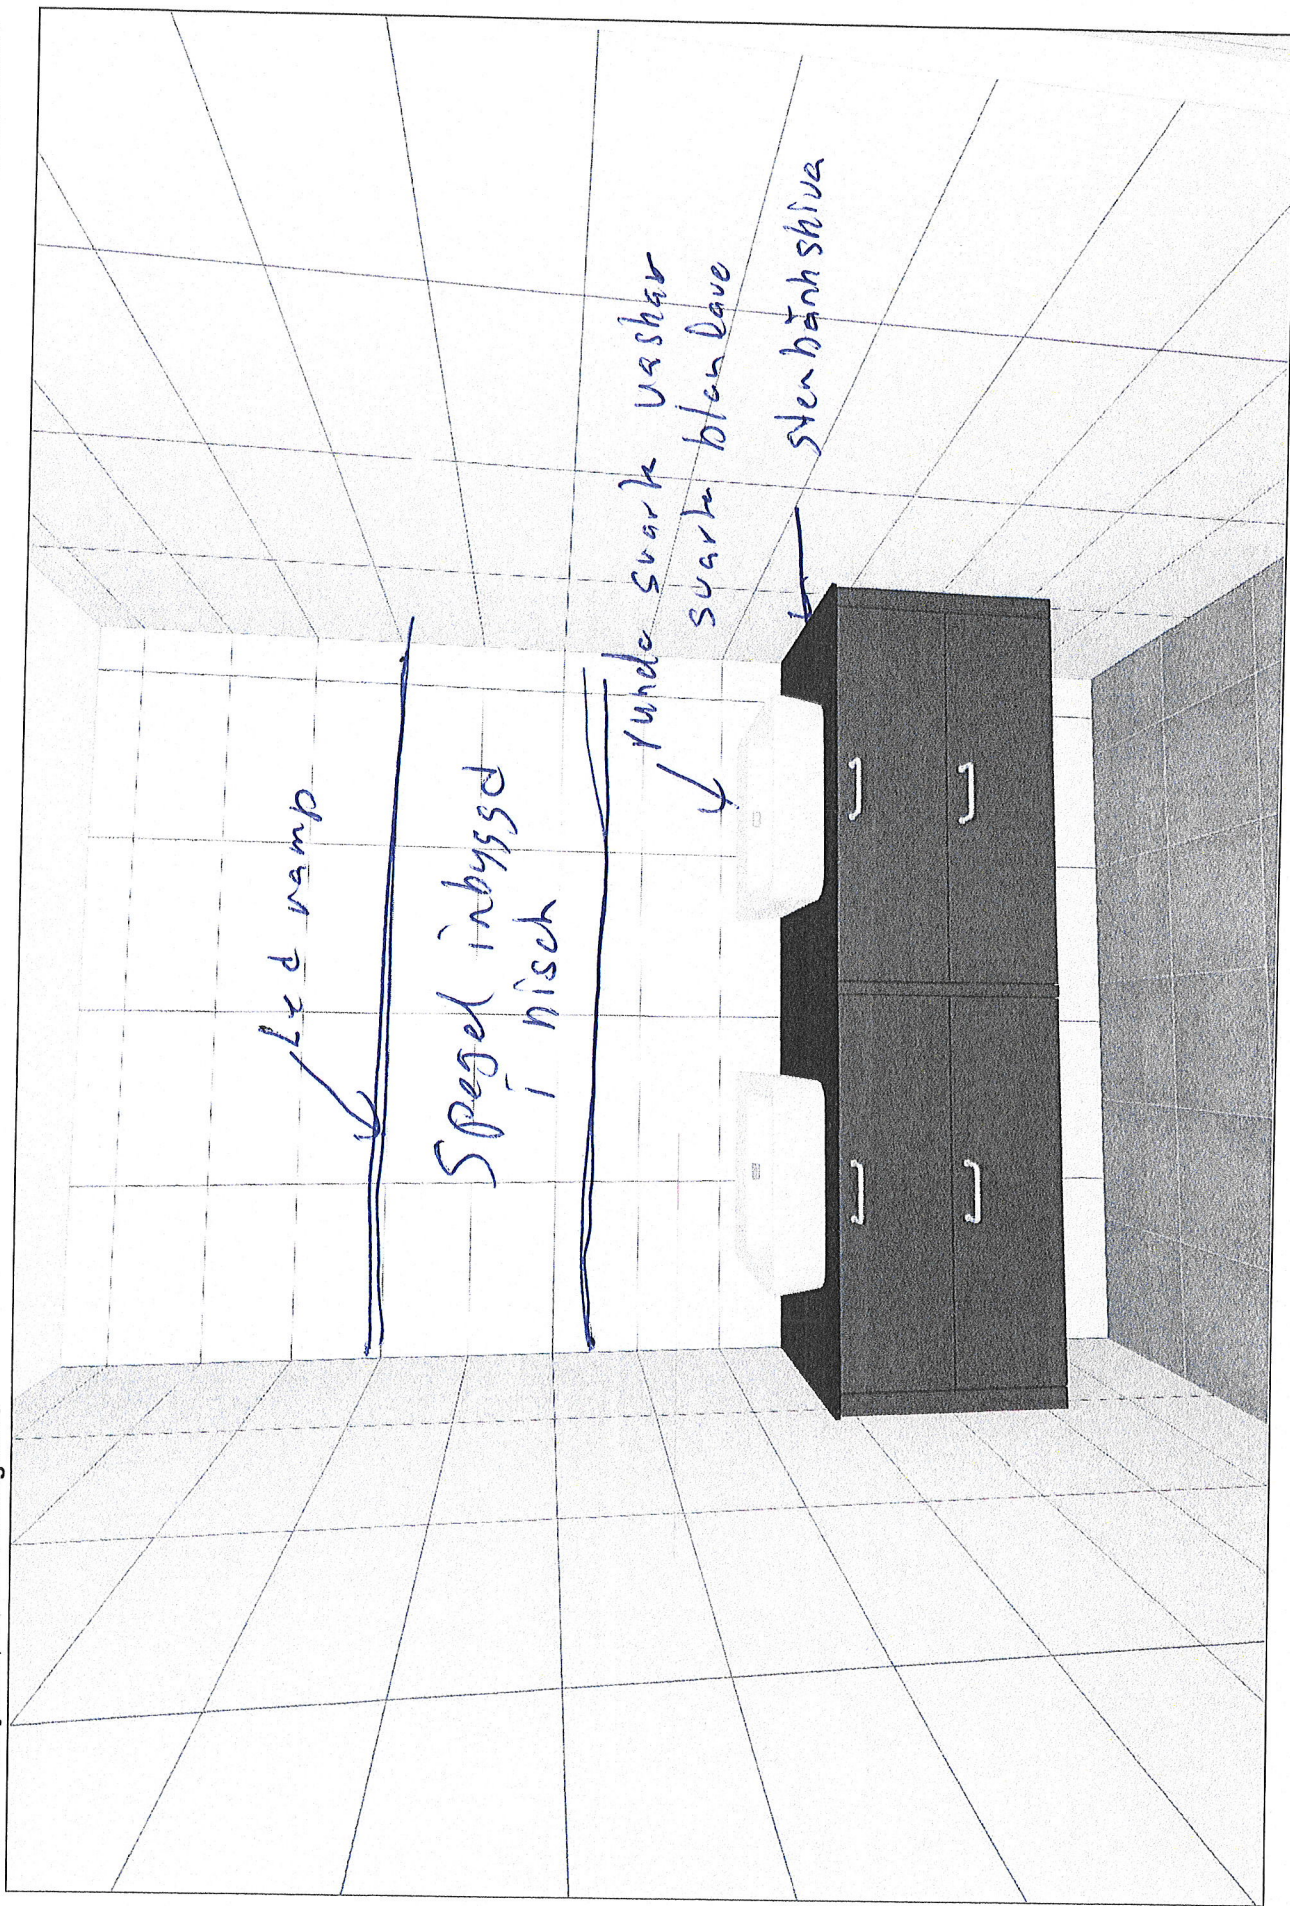 Led ramp
Spegel inbyggd
i nisch
runda svarta vaskar
svarta blandare
stenbänkskiva